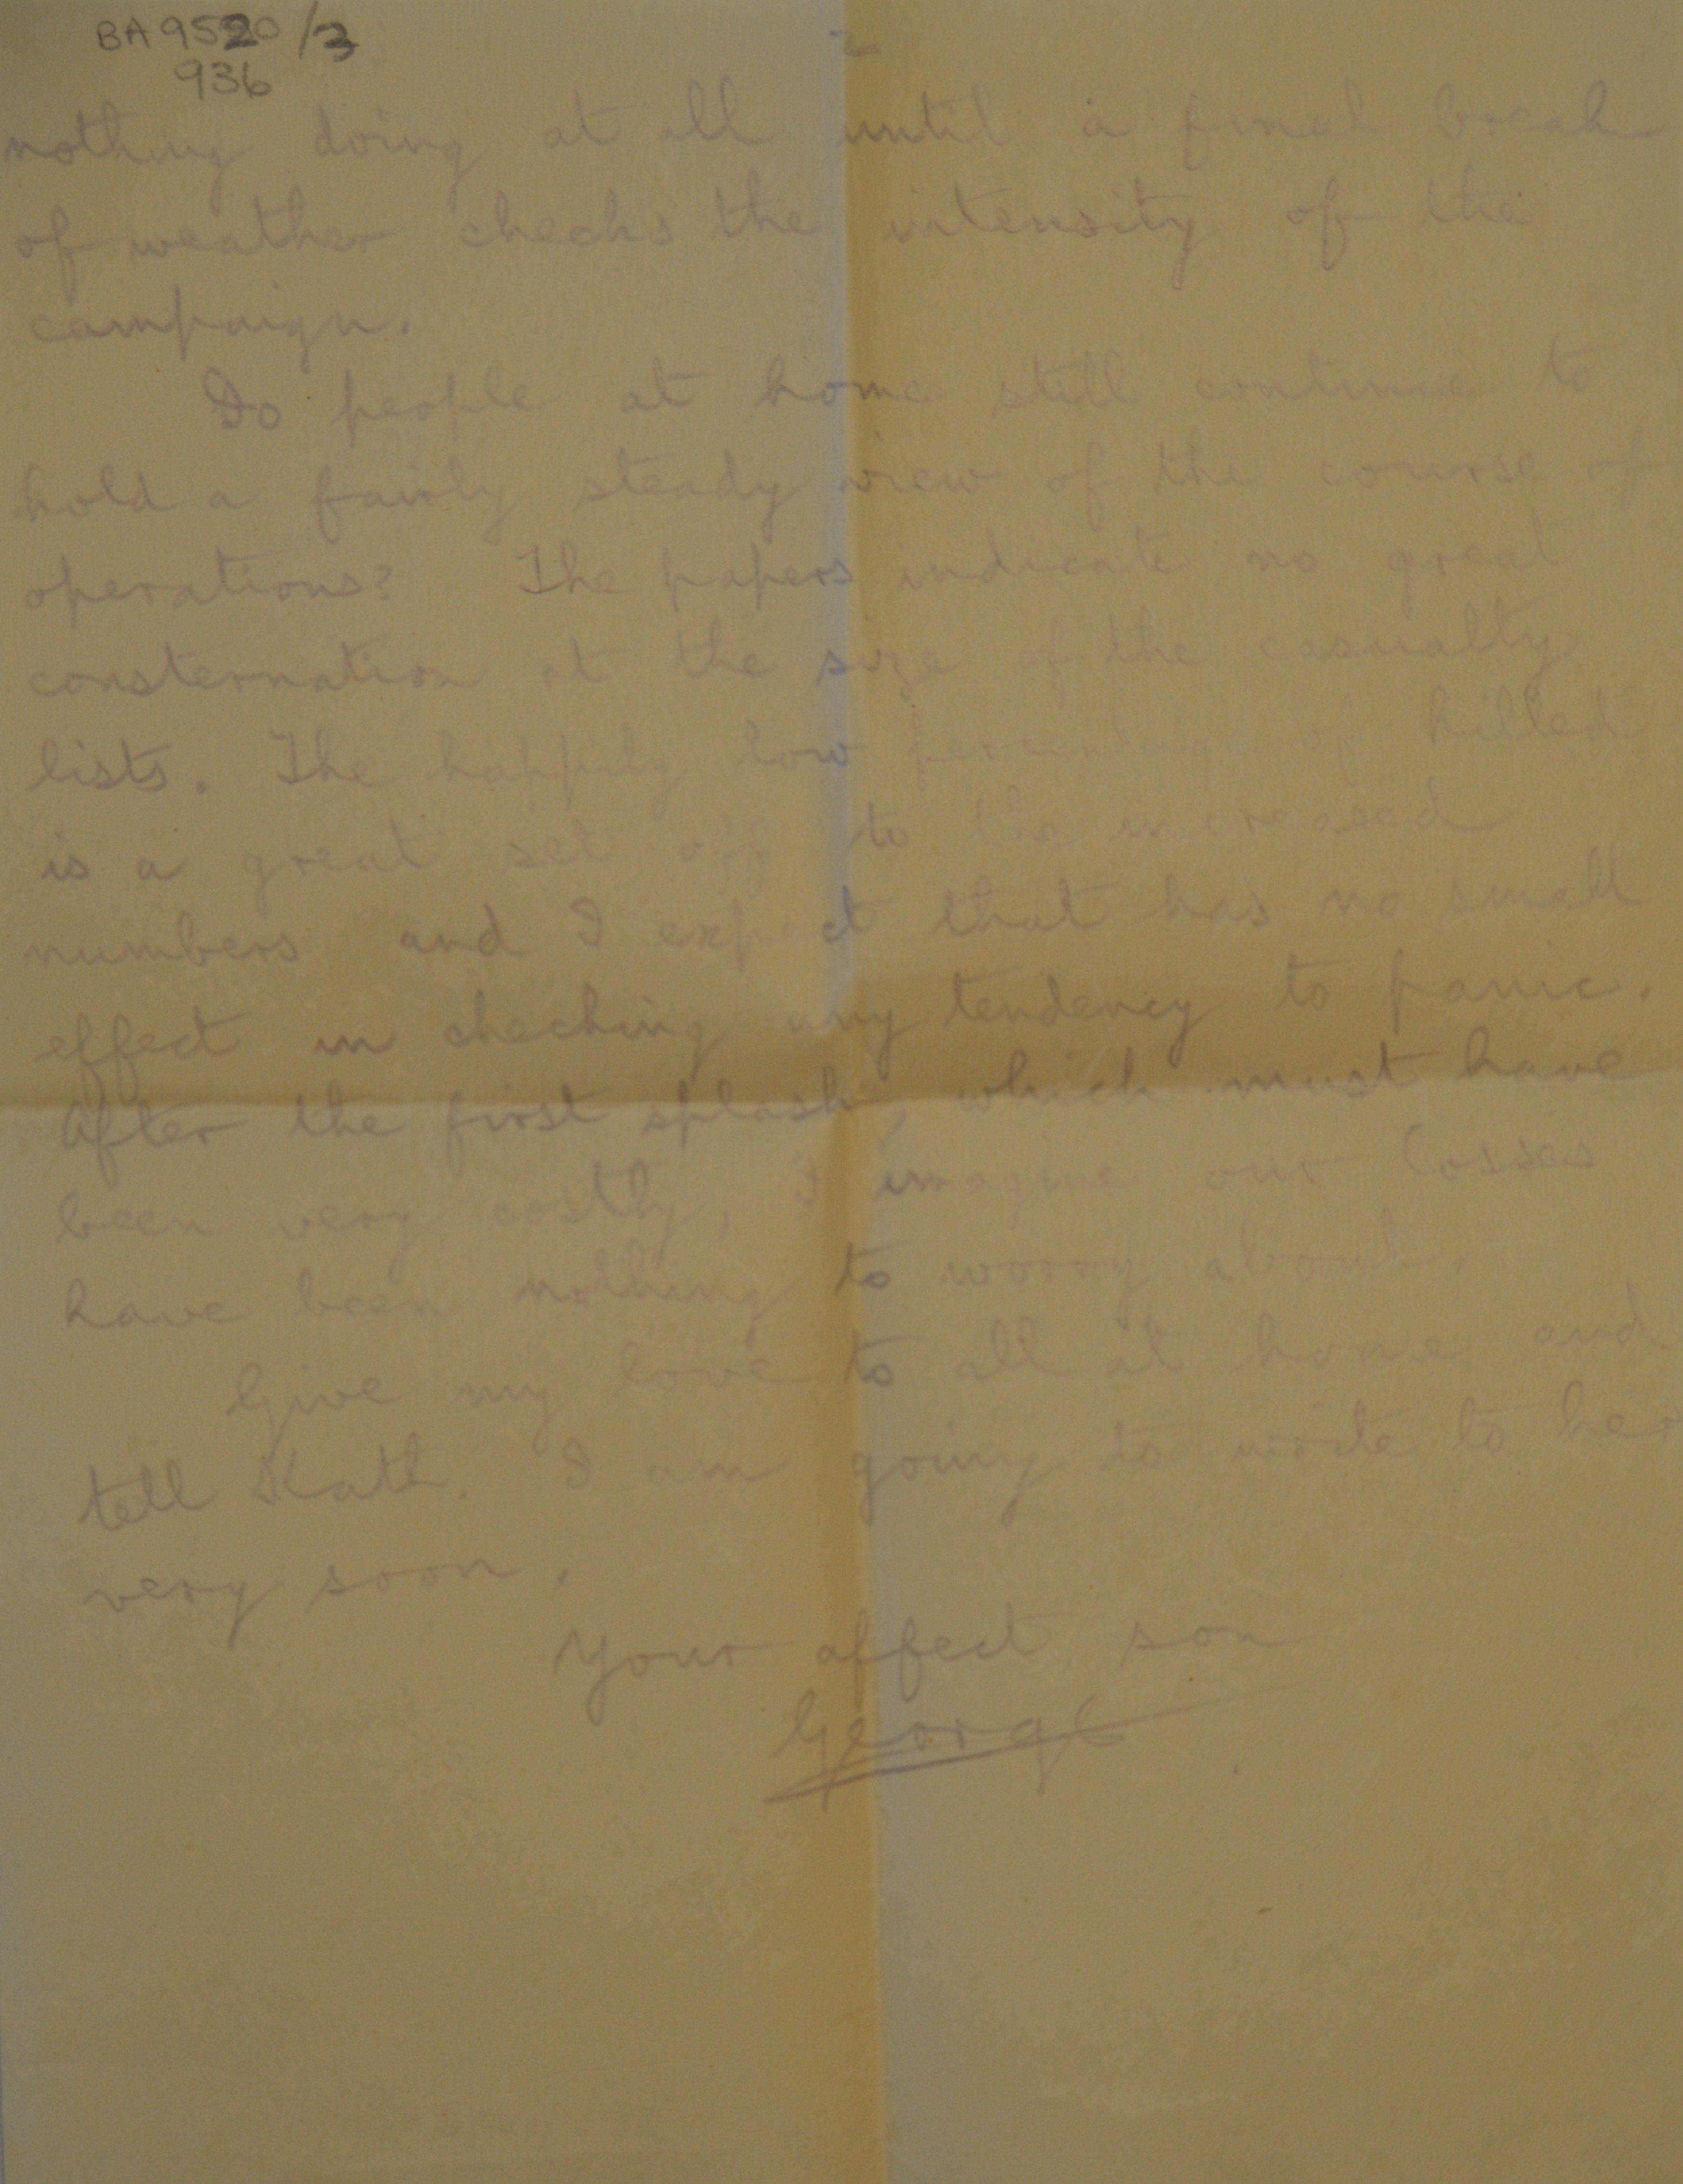 BA 9520/3
936
2
nothing doing at all until a final break
of weather checks the intensity of the
campaign.
Do people at home still continue to
hold a fairly steady view of the course of
operations? The papers indicate no great
consternation at the size of the casualty
lists. The happily low percentage of killed
is a great set off to the increased
numbers and I expect that has no small
effect in checking any tendency to panic.
After the first splash, which must have
been very costly, I imagine our losses
have been nothing to worry about.
Give my love to all at home and
tell Kath. I am going to write to her
very soon.
Your affect. son
George